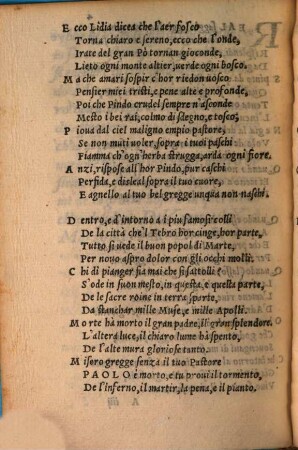 E cco Lidia dicea che l'aer fosco
Torna chiaro e sereno, ecco che l'onde,
Irate del gran Pò tornan gioconde,
Lieto ogni monte altier, uerde ogni bosco.
M a che amari sospir c'hor riedon uosco
Pensier miei tristi, e pene alte e profonde,
Poi che Pindo crudel sempre n'asconde
Mesto i bei rai, colmo di sdegno, e tosco;
P ioua dal ciel maligno empio pastore,
Se non muti uoler, sopra i tuoi paschi
Fiamma ch'ogn'herba strugga, arda ogni fiore.
A nzi, rispose all'hor Pindo, pur caschi
Perfida, e disleal sopra il tuo cuore,
E agnello al tuo bel gregge unqua non naschi.
D entro, e d'intorno a i piu famosi colli
De la città che'l Tebro hor cinge, hor parte,
Tutto si uede il buon popol di Marte,
Per nouo aspro dolor con gli occhi molli.
C hi di pianger fia mai che si satolli?
S'ode in suon mesto, in questa, e questa parte,
De le sacre roine in terra sparte,
Da stanchar mille Muse, e mille Apolli.
M orte hà morto il gran padre, il gran splendore.
L'altera luce, il chiaro lume hà spento,
De l'alte mura gloriose tanto.
M isero gregge senza il tuo Pastore
PAOLO è morto, e tu proui il tormento,
De l'Inferno, il martir, la pena, e il pianto.